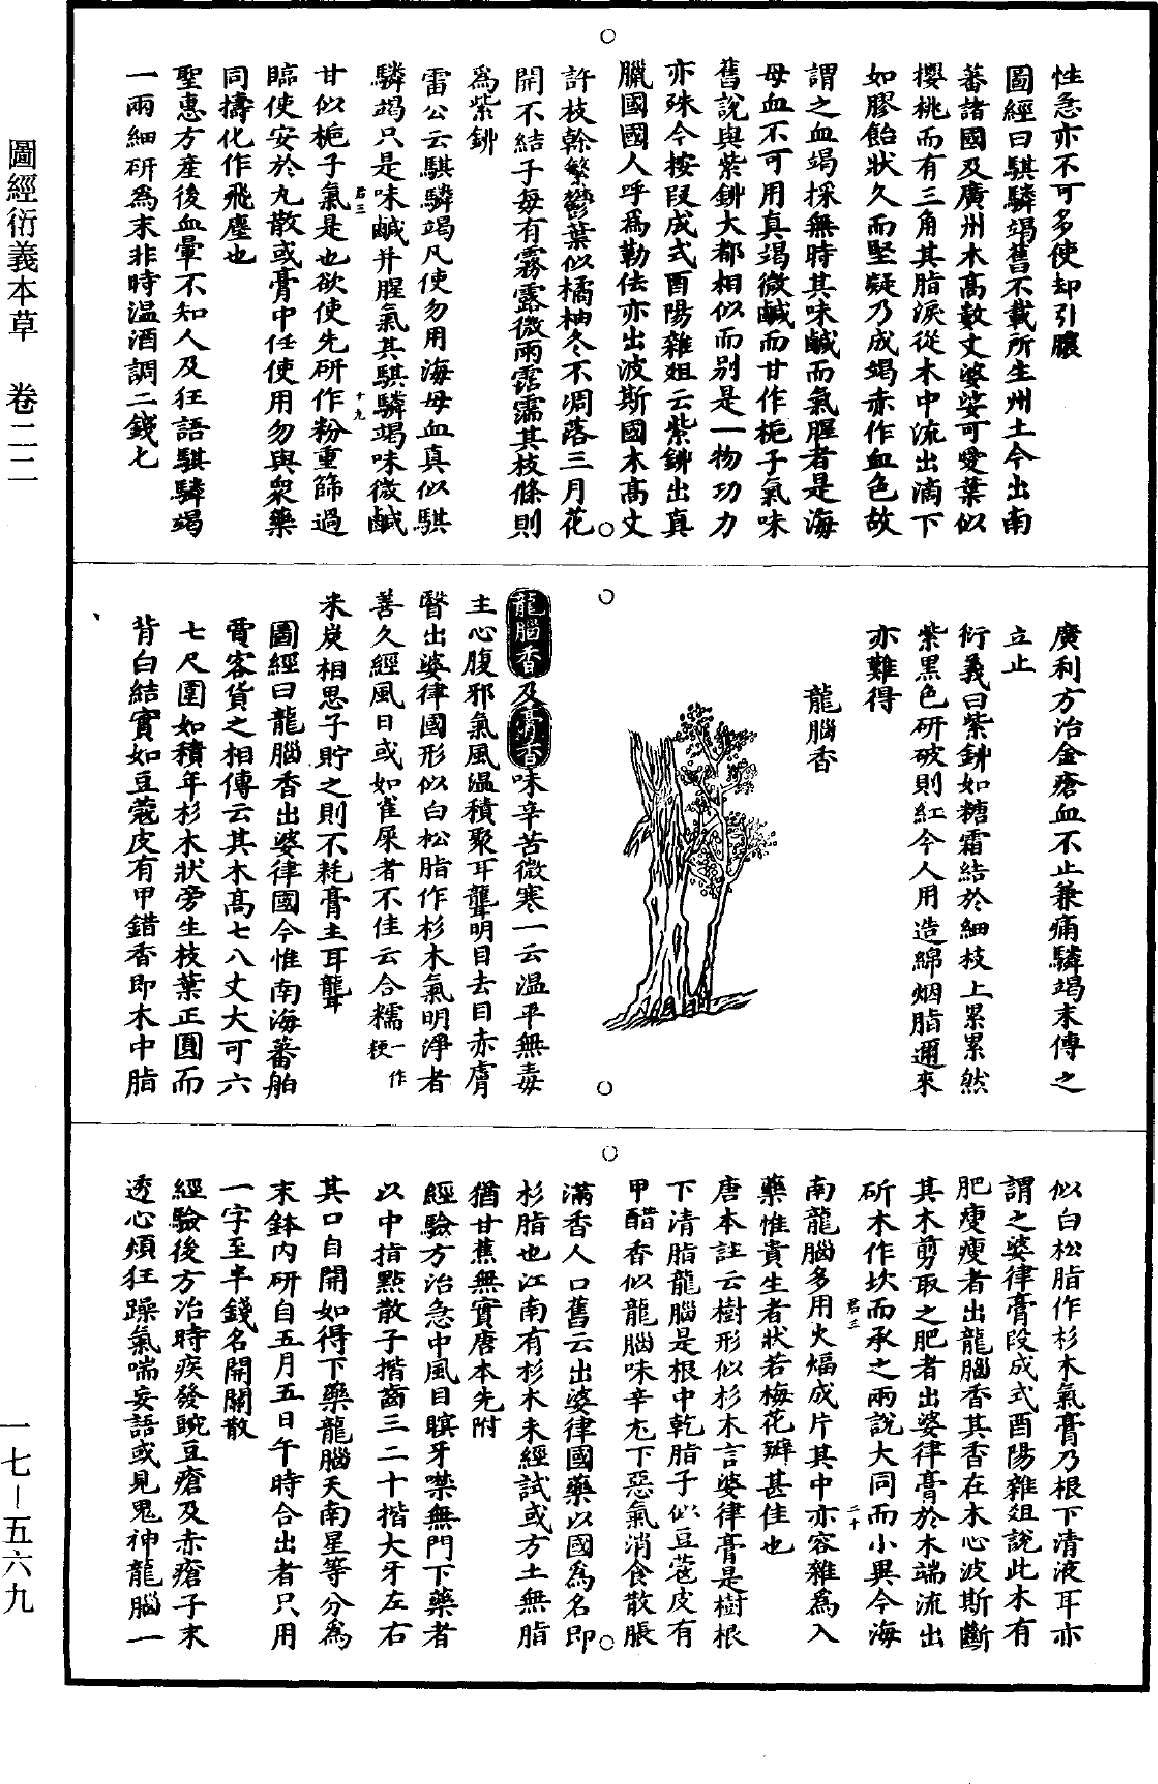 圖經衍義本草　卷二二
一七—五六九
性急亦不可多使却引膿
圖經曰騏驎竭舊不載所生州土今出南
蕃諸國及廣州木高數丈婆娑可愛葉似
櫻桃而有三角其脂淚從木中流出滴下
如膠飴狀久而堅凝乃成竭赤作血色故
謂之血竭採無時其味鹹而氣腥者是海
母血不可用真竭微鹹而甘作梔子氣味
舊說與紫鉚大都相似而別是一物功力
亦殊今按段成式酉陽雜俎云紫鉚出真
臘國國人呼為勒佉亦出波斯國木高丈
許枝幹繁鬱葉似橘柚冬不凋落三月花
開不結子每有霧露微雨霑濡其枝條則
為紫鉚
雷公云騏驎竭凡使勿用海母血真似騏
驎竭只是味鹹并腥氣其騏驎竭味微鹹
君三
十九
甘似梔子氣是也欲使先研作粉重篩過
臨使安於丸散或膏中任使用勿與眾藥
同擣化作飛塵也
聖惠方產後血暈不知人及狂語騏驎竭
一兩細研為末非時温酒調二錢匕
廣利方治金瘡血不止兼痛驎竭末傅之
立止
衍義曰紫鉚如糖霜結於細枝上累累然
紫黑色研破則紅今人用造綿烟脂邇來
亦難得
龍腦香
龍腦香及膏香味辛苦微寒一云温平無毒
主心腹邪氣風温積聚耳聾明目去目赤膚
瞖出婆律國形似白松脂作杉木氣明淨者
善久經風日或如雀屎者不佳云合糯一作粳
米炭相思子貯之則不耗膏主耳聾
圖經曰龍腦香出婆律國今惟南海蕃舶
賈客貨之相傳云其木高七八丈大可六
七尺圍如積年杉木狀旁生枝葉正圓而
背白結實如豆蔻皮有甲錯香即木中脂
似白松脂作杉木氣膏乃根下清液耳亦
謂之婆律膏段成式酉陽雜俎說此木有
肥瘦瘦者出龍腦香其香在木心波斯斷
其木剪取之肥者出婆律膏於木端流出
斫木作坎而承之兩說大同而小異今海
君三
二十
南龍腦多用火煏成片其中亦容雜為入
藥惟貴生者狀若梅花瓣甚佳也
唐本註云樹形似杉木言婆律膏是樹根
下清脂龍腦是根中乾脂子似豆蔻皮有
甲醋香似龍腦味辛尤下惡氣消食散脹
滿香人口舊云出婆律國藥以國為名即
杉脂也江南有杉木未經試或方土無脂
猶甘蕉無實唐本先附
經驗方治急中風目瞑牙噤無門下藥者
以中指點散子揩齒三二十揩大牙左右
其口自開如得下藥龍腦天南星等分為
末鉢內研自五月五日午時合出者只用
一字至半錢名開關散
經驗後方治時疾發豌豆瘡及赤瘡子未
透心煩狂躁氣喘妄語或見鬼神龍腦一